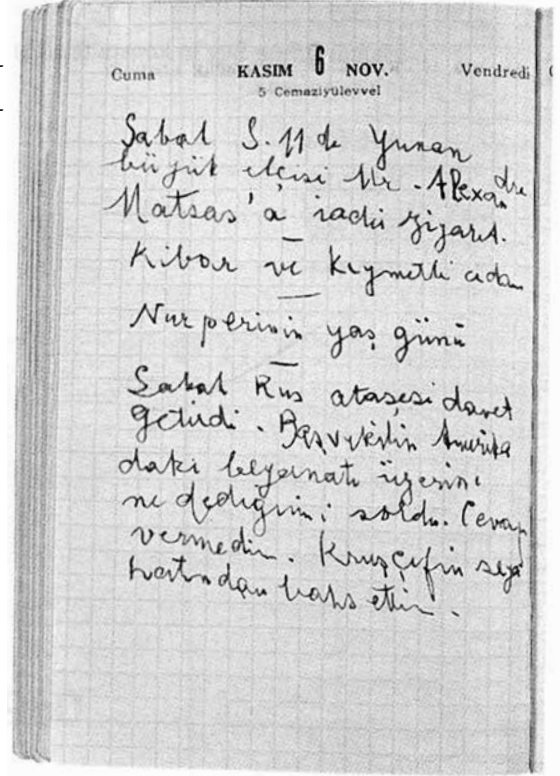 Cuma KASIM 6 NOV. Vendredi
5 Cemaziyülevvel
Sabah S. 11 de Yunan
büyük elçisi Mr. Alexandre
Matsas'a iadei ziyaret.
Kibar ve kıymetli adam
Nurperinin yaş günü
Sabah Rus ataşesi davet
getirdi. Başvekilin Amerika
daki beyanatı üzerine
ne dediğimi sordu. Cevap
vermedim. Kruşçefin seya
hatından bahsettim.